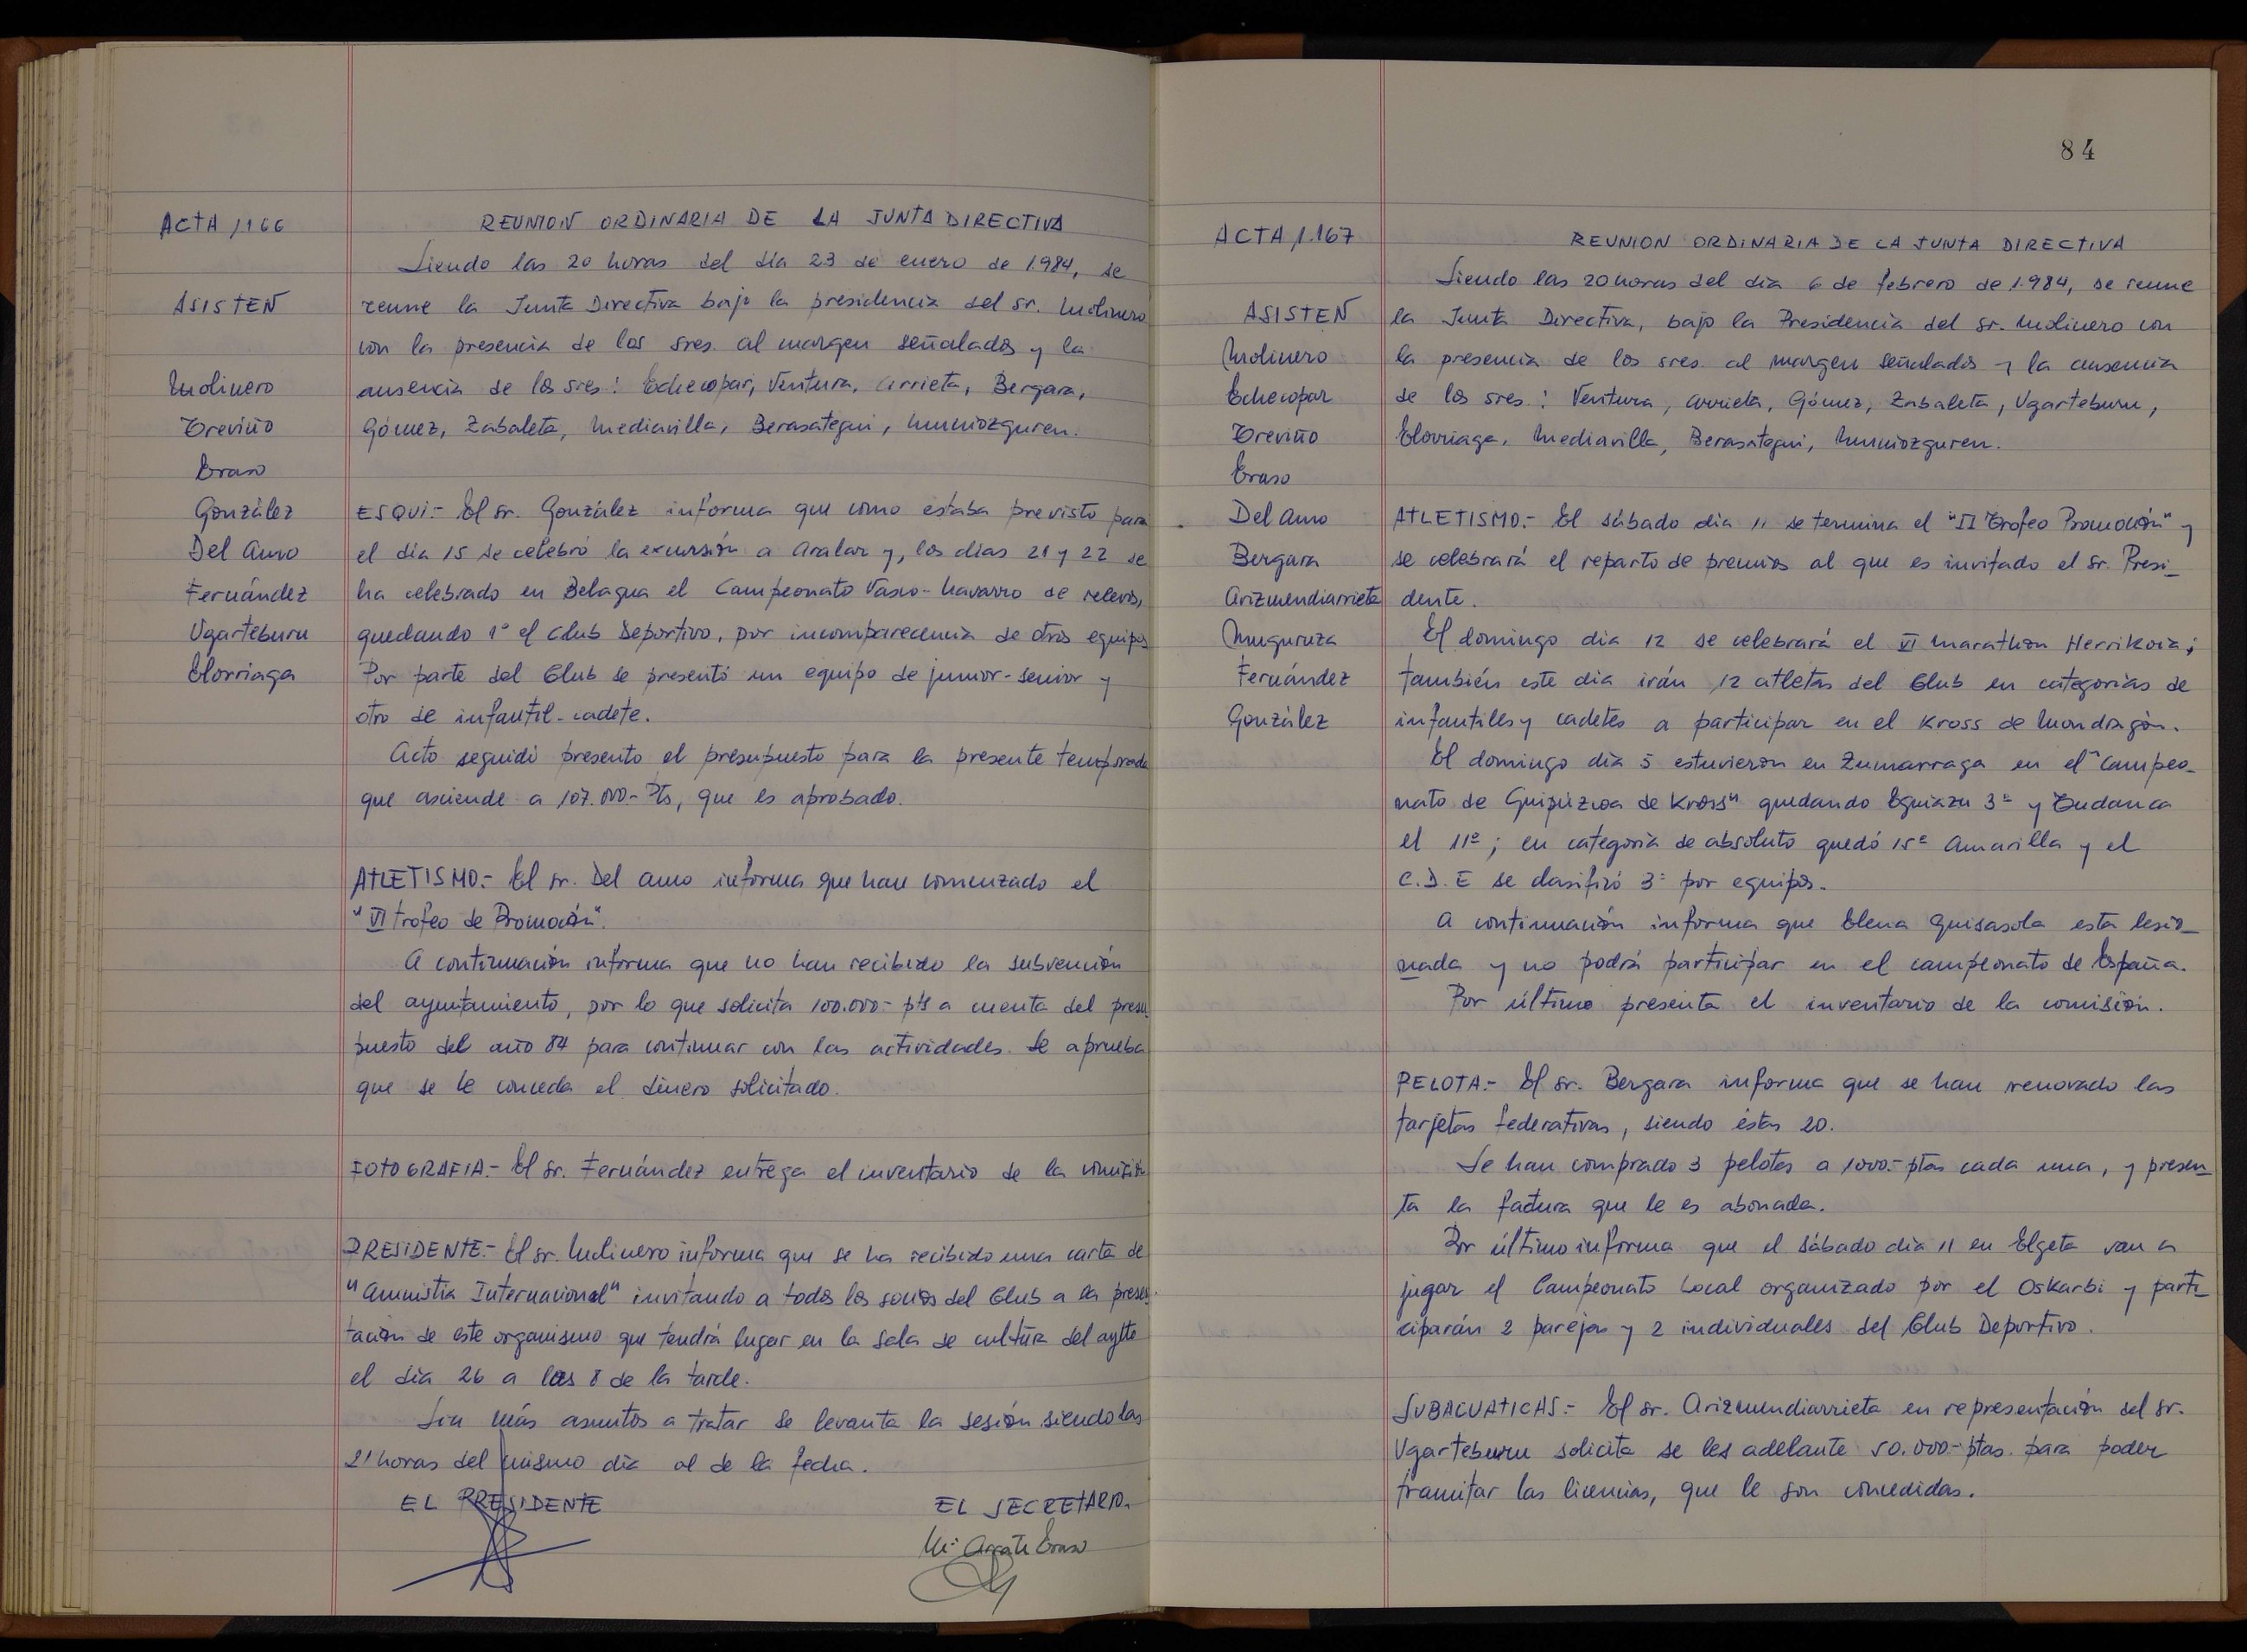 ACTA 1166
REUNION ORDINARIA DE LA JUNTA DIRECTIVA
Siendo las 20 horas del día 23 de enero de 1.984, se
ASISTEN
reune la Junta Directiva bajo la presidencia del sr. Molinero
con la presencia de los sres. al margen señalados y la
Molinero
ausencia de los sres: Echecopar, Ventura, Arrieta, Bergara,
Treviño
Gómez, Zabaleta, Mediavilla, Berasategui, Muniozguren.
Eraso
González
ESQUI.- El sr. González informa que como estaba previsto para
Del Amo
el día 15 se celebró la excursión a Aralar y, los días 21 y 22 se
Fernández
ha celebrado en Belagua el Campeonato Vasco-Navarro de relevos,
Ugarteburu
quedando 1º el Club Deportivo, por incomparecencia de otros equipos
Elorriaga
Por parte del Club se presentó un equipo de junior-senior y
otro de infantil-cadete.
Acto seguido presento el presupuesto para la presente temporada
que asciende a 107.000.- Pts, que es aprobado.
ATLETISMO.- El sr. Del Amo informa que han comenzado el
"VI trofeo de Promoción".
A continuación informa que no han recibido la subvención
del ayuntamiento, por lo que solicita 100.000.- pts a cuenta del presu-
puesto del año 84 para continuar con las actividades. Se aprueba
que se le conceda el dinero solicitado.
FOTOGRAFIA.- El sr. Fernández entrega el inventario de la comisión
PRESIDENTE.- El sr. Molinero informa que se ha recibido una carta de
"Amnistia Internacional" invitando a todos los socios del Club a la presen-
tación de este organismo que tendrá lugar en la sala de cultura del aytto
el día 26 a las 8 de la tarde.
Sin más asuntos a tratar se levanta la sesión siendo las
21 horas del mismo día al de la fecha.
EL PRESIDENTE
EL SECRETARIO.
Mª Arrate Eraso
84
ACTA 1.167
REUNION ORDINARIA DE LA JUNTA DIRECTIVA
Siendo las 20 horas del día 6 de febrero de 1.984, se reune
ASISTEN
la Junta Directiva, bajo la Presidencia del sr. Molinero con
Molinero
la presencia de los sres. al margen señalados y la ausencia
Echecopar
de los sres: Ventura, Arrieta, Gómez, Zabaleta, Ugarteburu,
Treviño
Elorriaga, Mediavilla, Berasategui, Muniozguren.
Eraso
Del Amo
ATLETISMO.- El sábado día 11 se termina el "II Trofeo Promoción" y
Bergara
se celebrará el reparto de premios al que es invitado el Sr. Presi-
Arizmendiarrieta
dente.
Muguruza
El domingo día 12 se celebrará el VI Marathon Herrikoia;
Fernández
también este día irán 12 atletas del Club en categorías de
González
infantiles y cadetes a participar en el Kross de Mondragón.
El domingo día 5 estuvieron en Zumarraga en el "Campeo-
nato de Guipúzcoa de Kross" quedando Eguiazu 3º y Tudanca
el 11º; en categoría de absoluto quedó 15º Amarilla y el
C.D.E se clasificó 3º por equipos.
A continuación informa que Elena Guisasola esta lesio-
nada y no podrá participar en el campeonato de España.
Por último presenta el inventario de la comisión.
PELOTA.- El sr. Bergara informa que se han renovado las
tarjetas federativas, siendo éstas 20.
Se han comprado 3 pelotas a 1000.- ptas cada una, y presen-
ta la factura que le es abonada.
Por último informa que el sábado día 11 en Elgeta van a
jugar el Campeonato Local organizado por el Oskarbi y parti-
ciparán 2 parejas y 2 individuales del Club Deportivo.
SUBACUATICAS.- El sr. Arizmendiarrieta en representación del sr.
Ugarteburu solicita se les adelante 50.000.- ptas. para poder
tramitar las licencias, que le son concedidas.